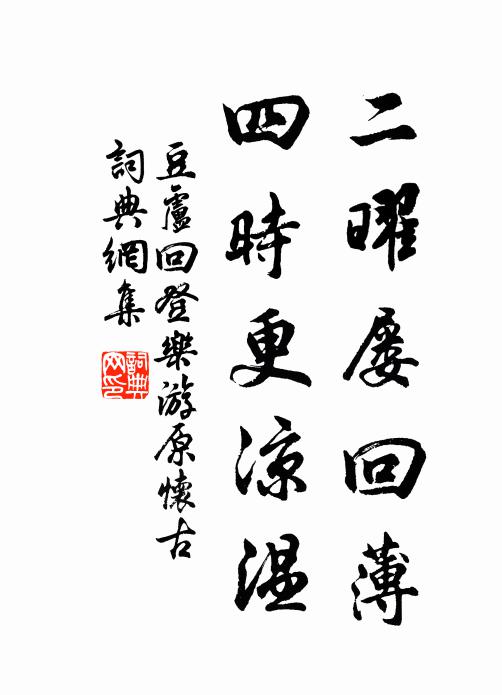 二曜屡回薄
四時更涼温
豆盧回登樂游原懷古
詞典網集
詞典網印